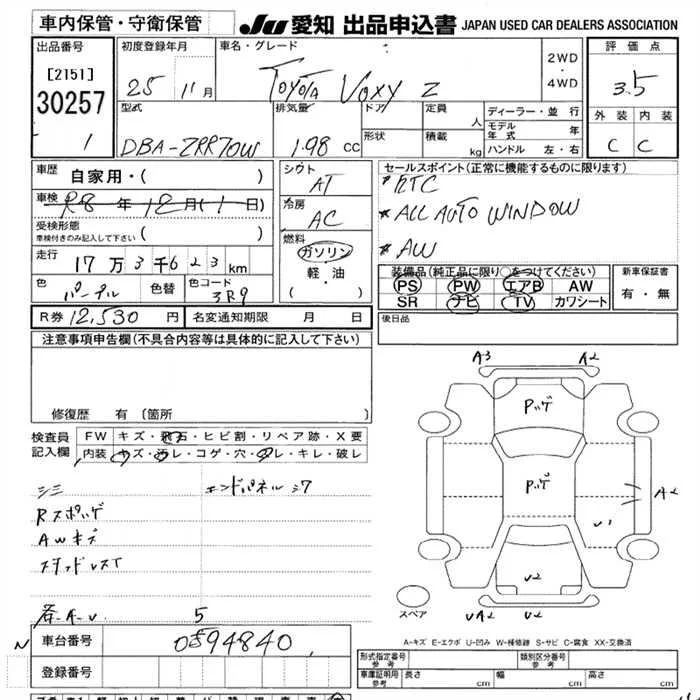 車内保管・守衛保管
JU 愛知 出品申込書 JAPAN USED CAR DEALERS ASSOCIATION
出品番号
[2151]
30257
1
初度登録年月
25 11月
車名・グレード
TOYOTA VOXY Z
2WD
・
4WD
評価点
3.5
外装 内装
C C
型式
DBA-ZRR70W
排気量
1.98 CC
ドア
形状
定員 人
積載 kg
ディーラー・並行
モデル年式 年
ハンドル 左・右
車歴 自家用・( )
車検 R8年12月(1日)
受検形態
車検付きのみ記入して下さい ( )
走行 17万3千623km
色 パープル 色替 色コード 3R9
シフト
AT
冷房
AC
燃料
ガソリン
・
軽・油
( )
セールスポイント(正常に機能するものに限ります)
*ETC
*ALL AUTO WINDOW
*AW
装備品(純正品に限り○をつけてください)
PS PW エアB AW
SR ナビ TV カワシート
新車保証書
有・無
後日品
R券 12,530 円 名変通知期限 月 日
注意事項申告欄(不具合内容等は具体的に記入して下さい)
修復歴 有 〔箇所
検査員
記入欄
FW キズ・飛石・ヒビ割・リペア跡・X要
内装 キズ・汚レ・コゲ・穴・スレ・キレ・破レ
シミ
エンドパネルシワ
Rスポハゲ
AWキズ
各-A-U
5
A3 A2
Pハゲ
Pハゲ
A2
U1
U2
UA2 U2
スペア
A-キズ E-エクボ U-凹み W-補修跡 S-サビ C-腐食 XX-交換済
N 車台番号 0594840
登録番号
形式指定番号 参考
類別区分番号 参考
車庫証明用 参考 長さ cm 幅 cm 高さ cm